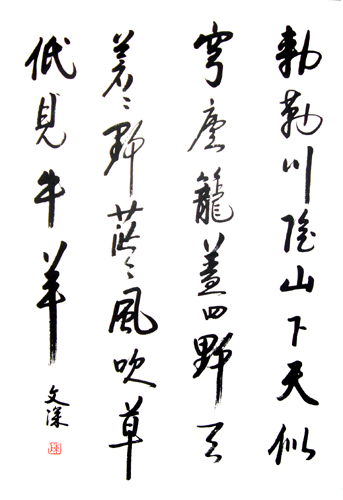 勅勒川陰山下天似
穹廬籠蓋四野天
蒼〻野茫〻風吹草
低見牛羊
文深